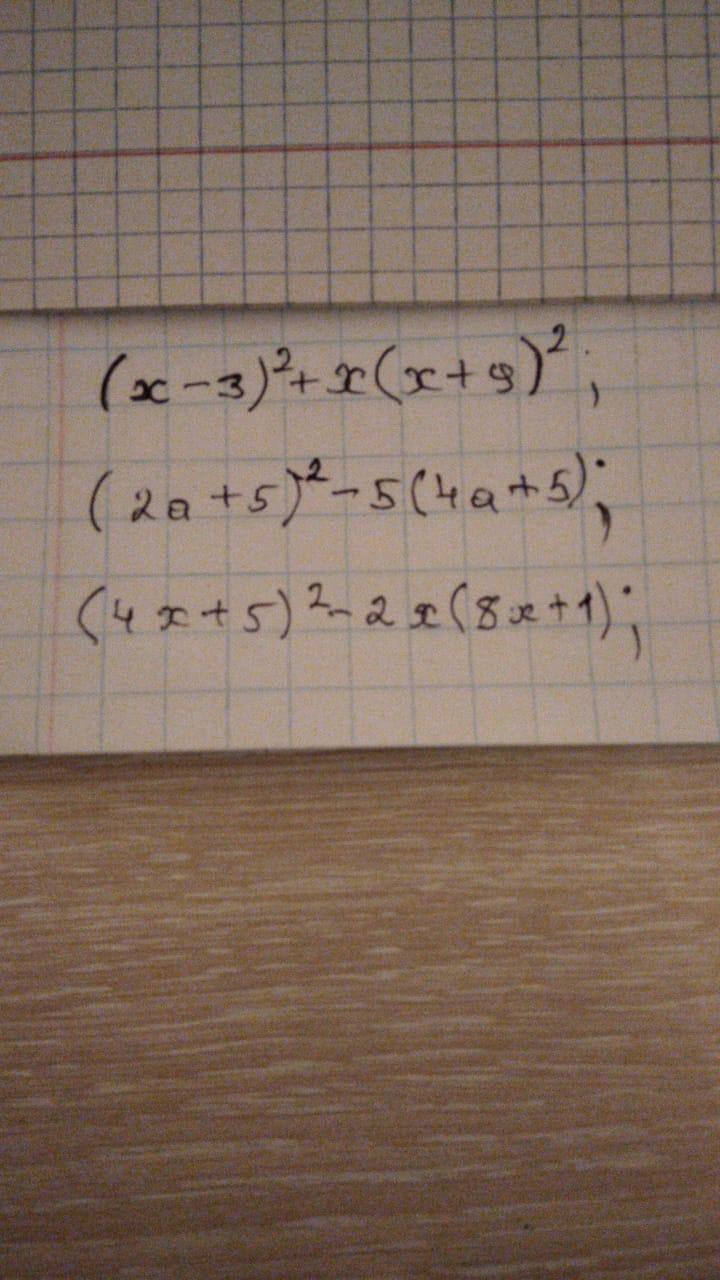 (x-3)²+x(x+9)²;
(2a+5)²-5(4a+5);
(4x+5)²-2x(8x+1);